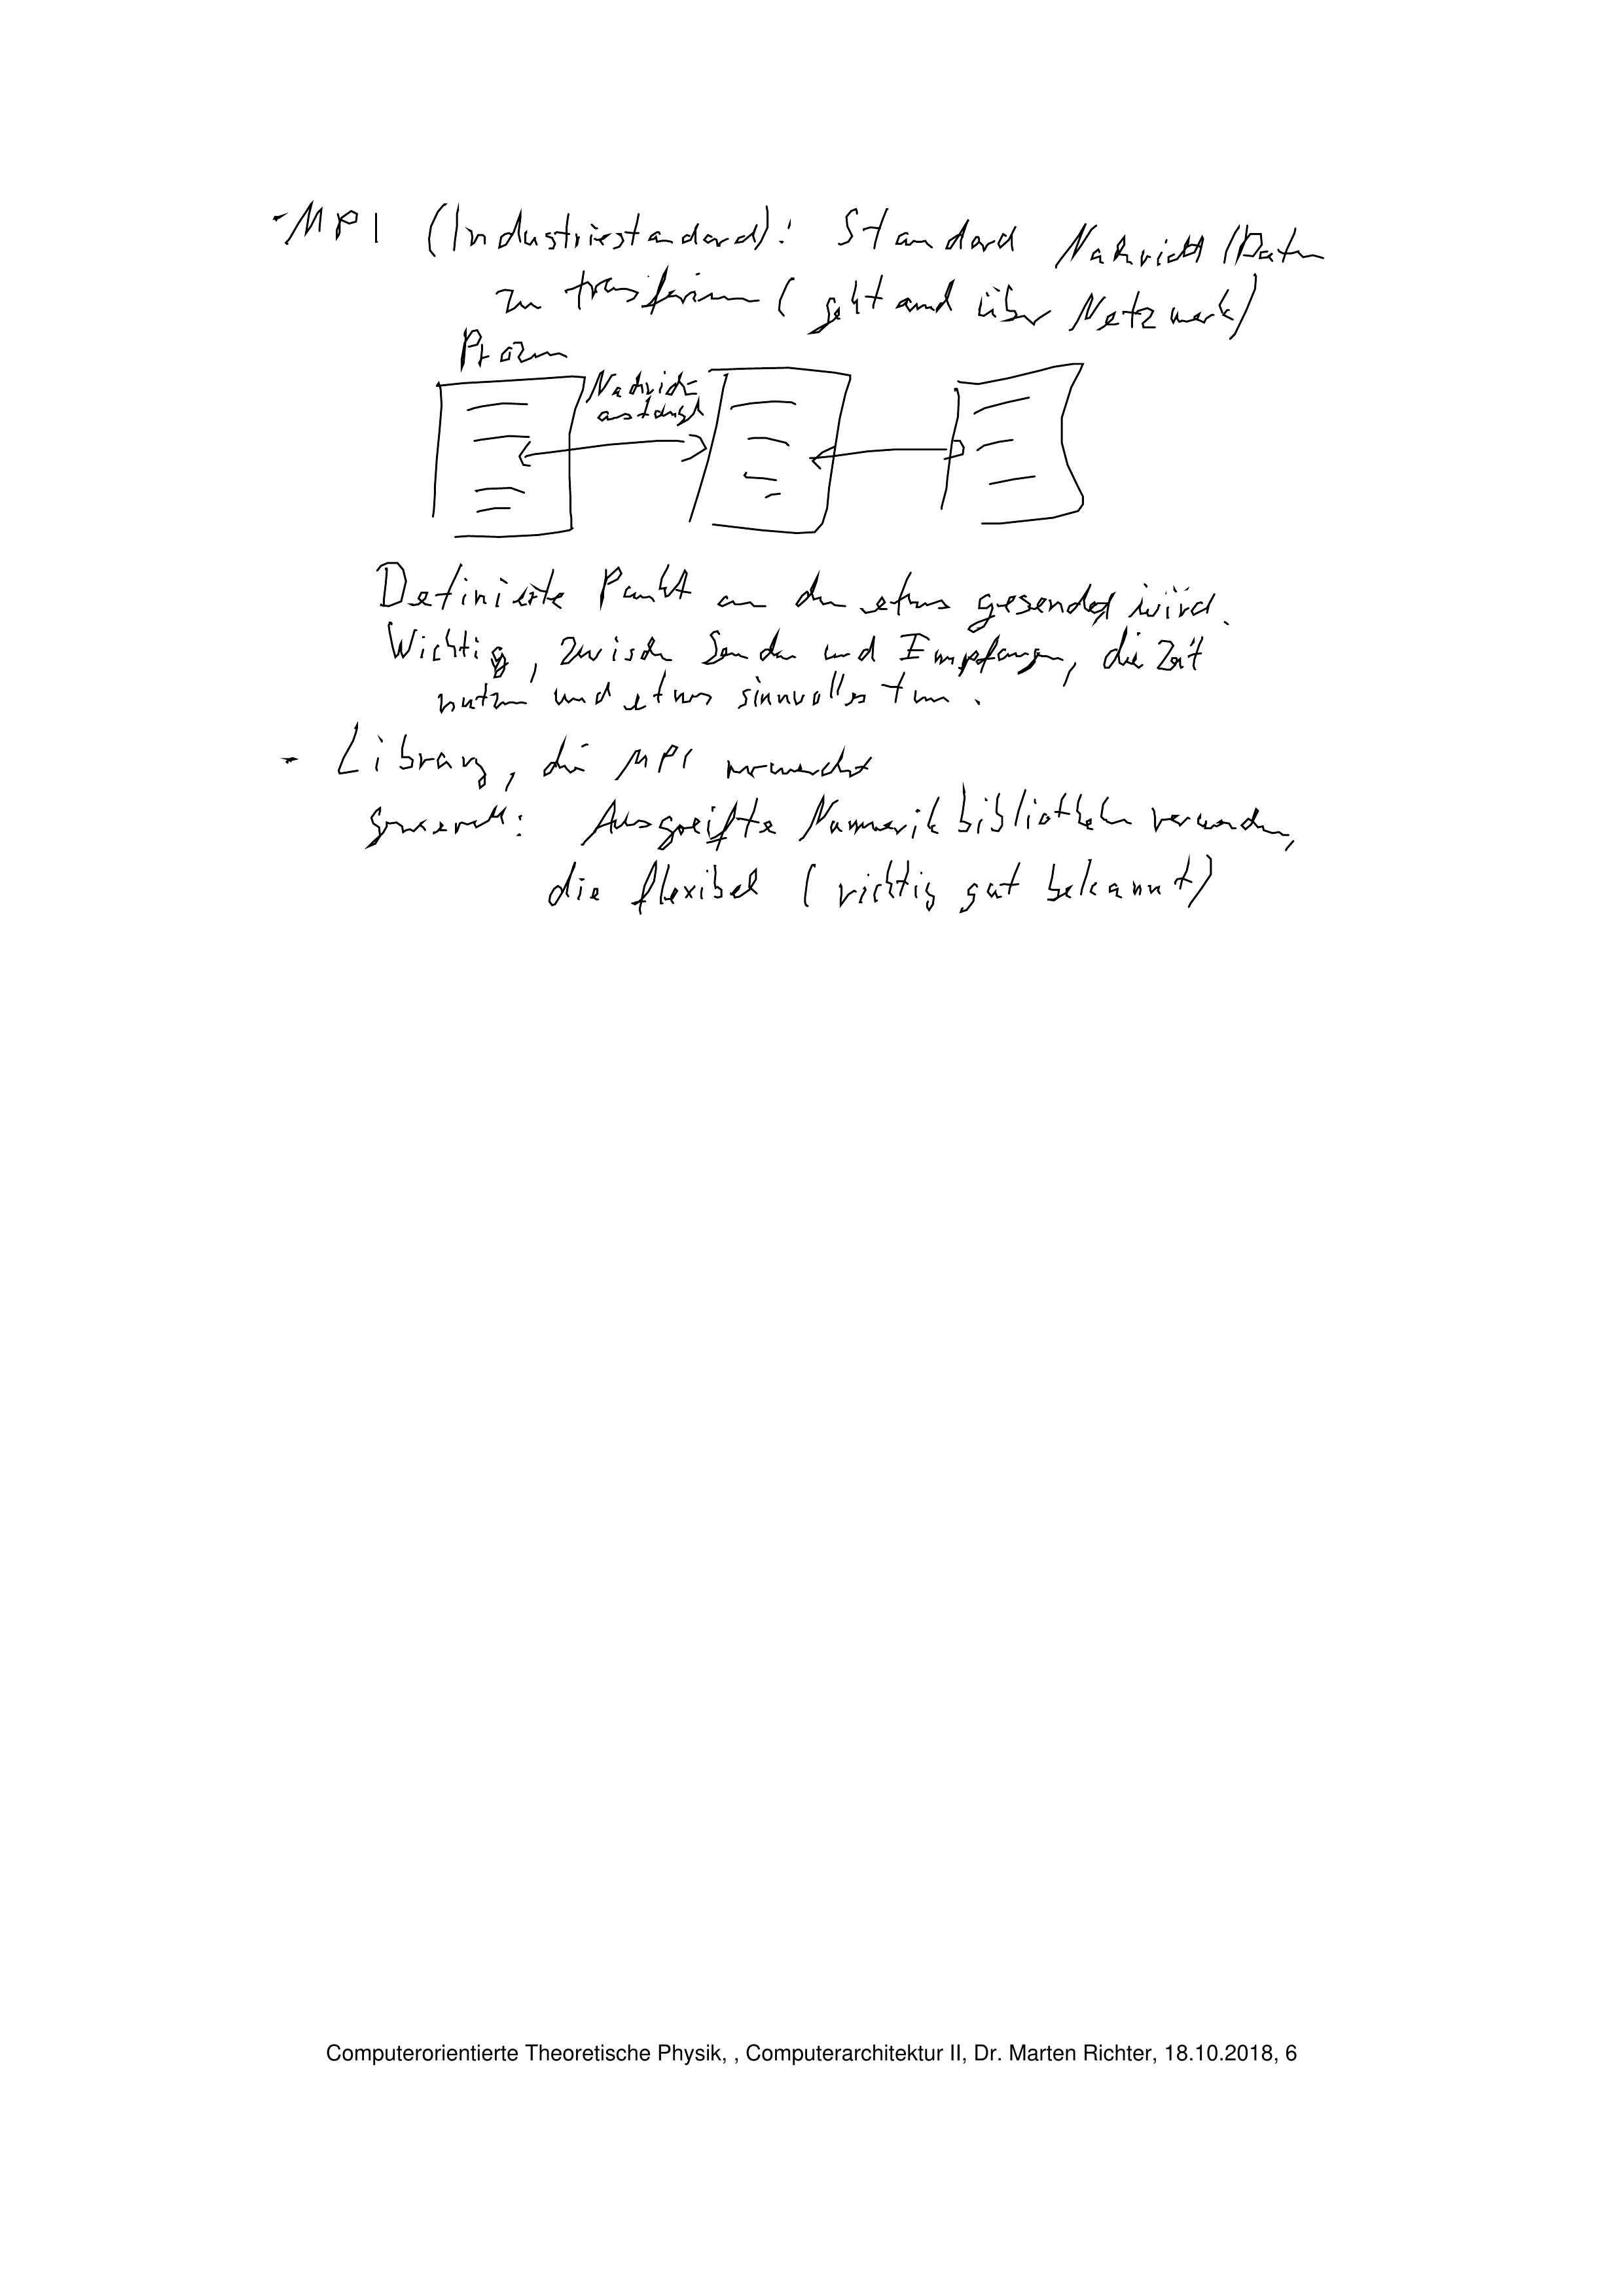 - MPI (Industriestandard): Standard Nachricht/Daten
zu transferieren (geht auch über Netzwerk)
Prozess
Nachrichtenaustausch
Definierte Punkt an den etwas gesendet wird.
Wichtig, zwischen Senden und Empfangen, die Zeit
nutzen und etwas sinnvolles tun.
- Library, die MPI
generell: Ausgreifte Nummerik bibliotheken verwenden,
die flexibel (richtig gut bekannt)
Computerorientierte Theoretische Physik, , Computerarchitektur II, Dr. Marten Richter, 18.10.2018, 6